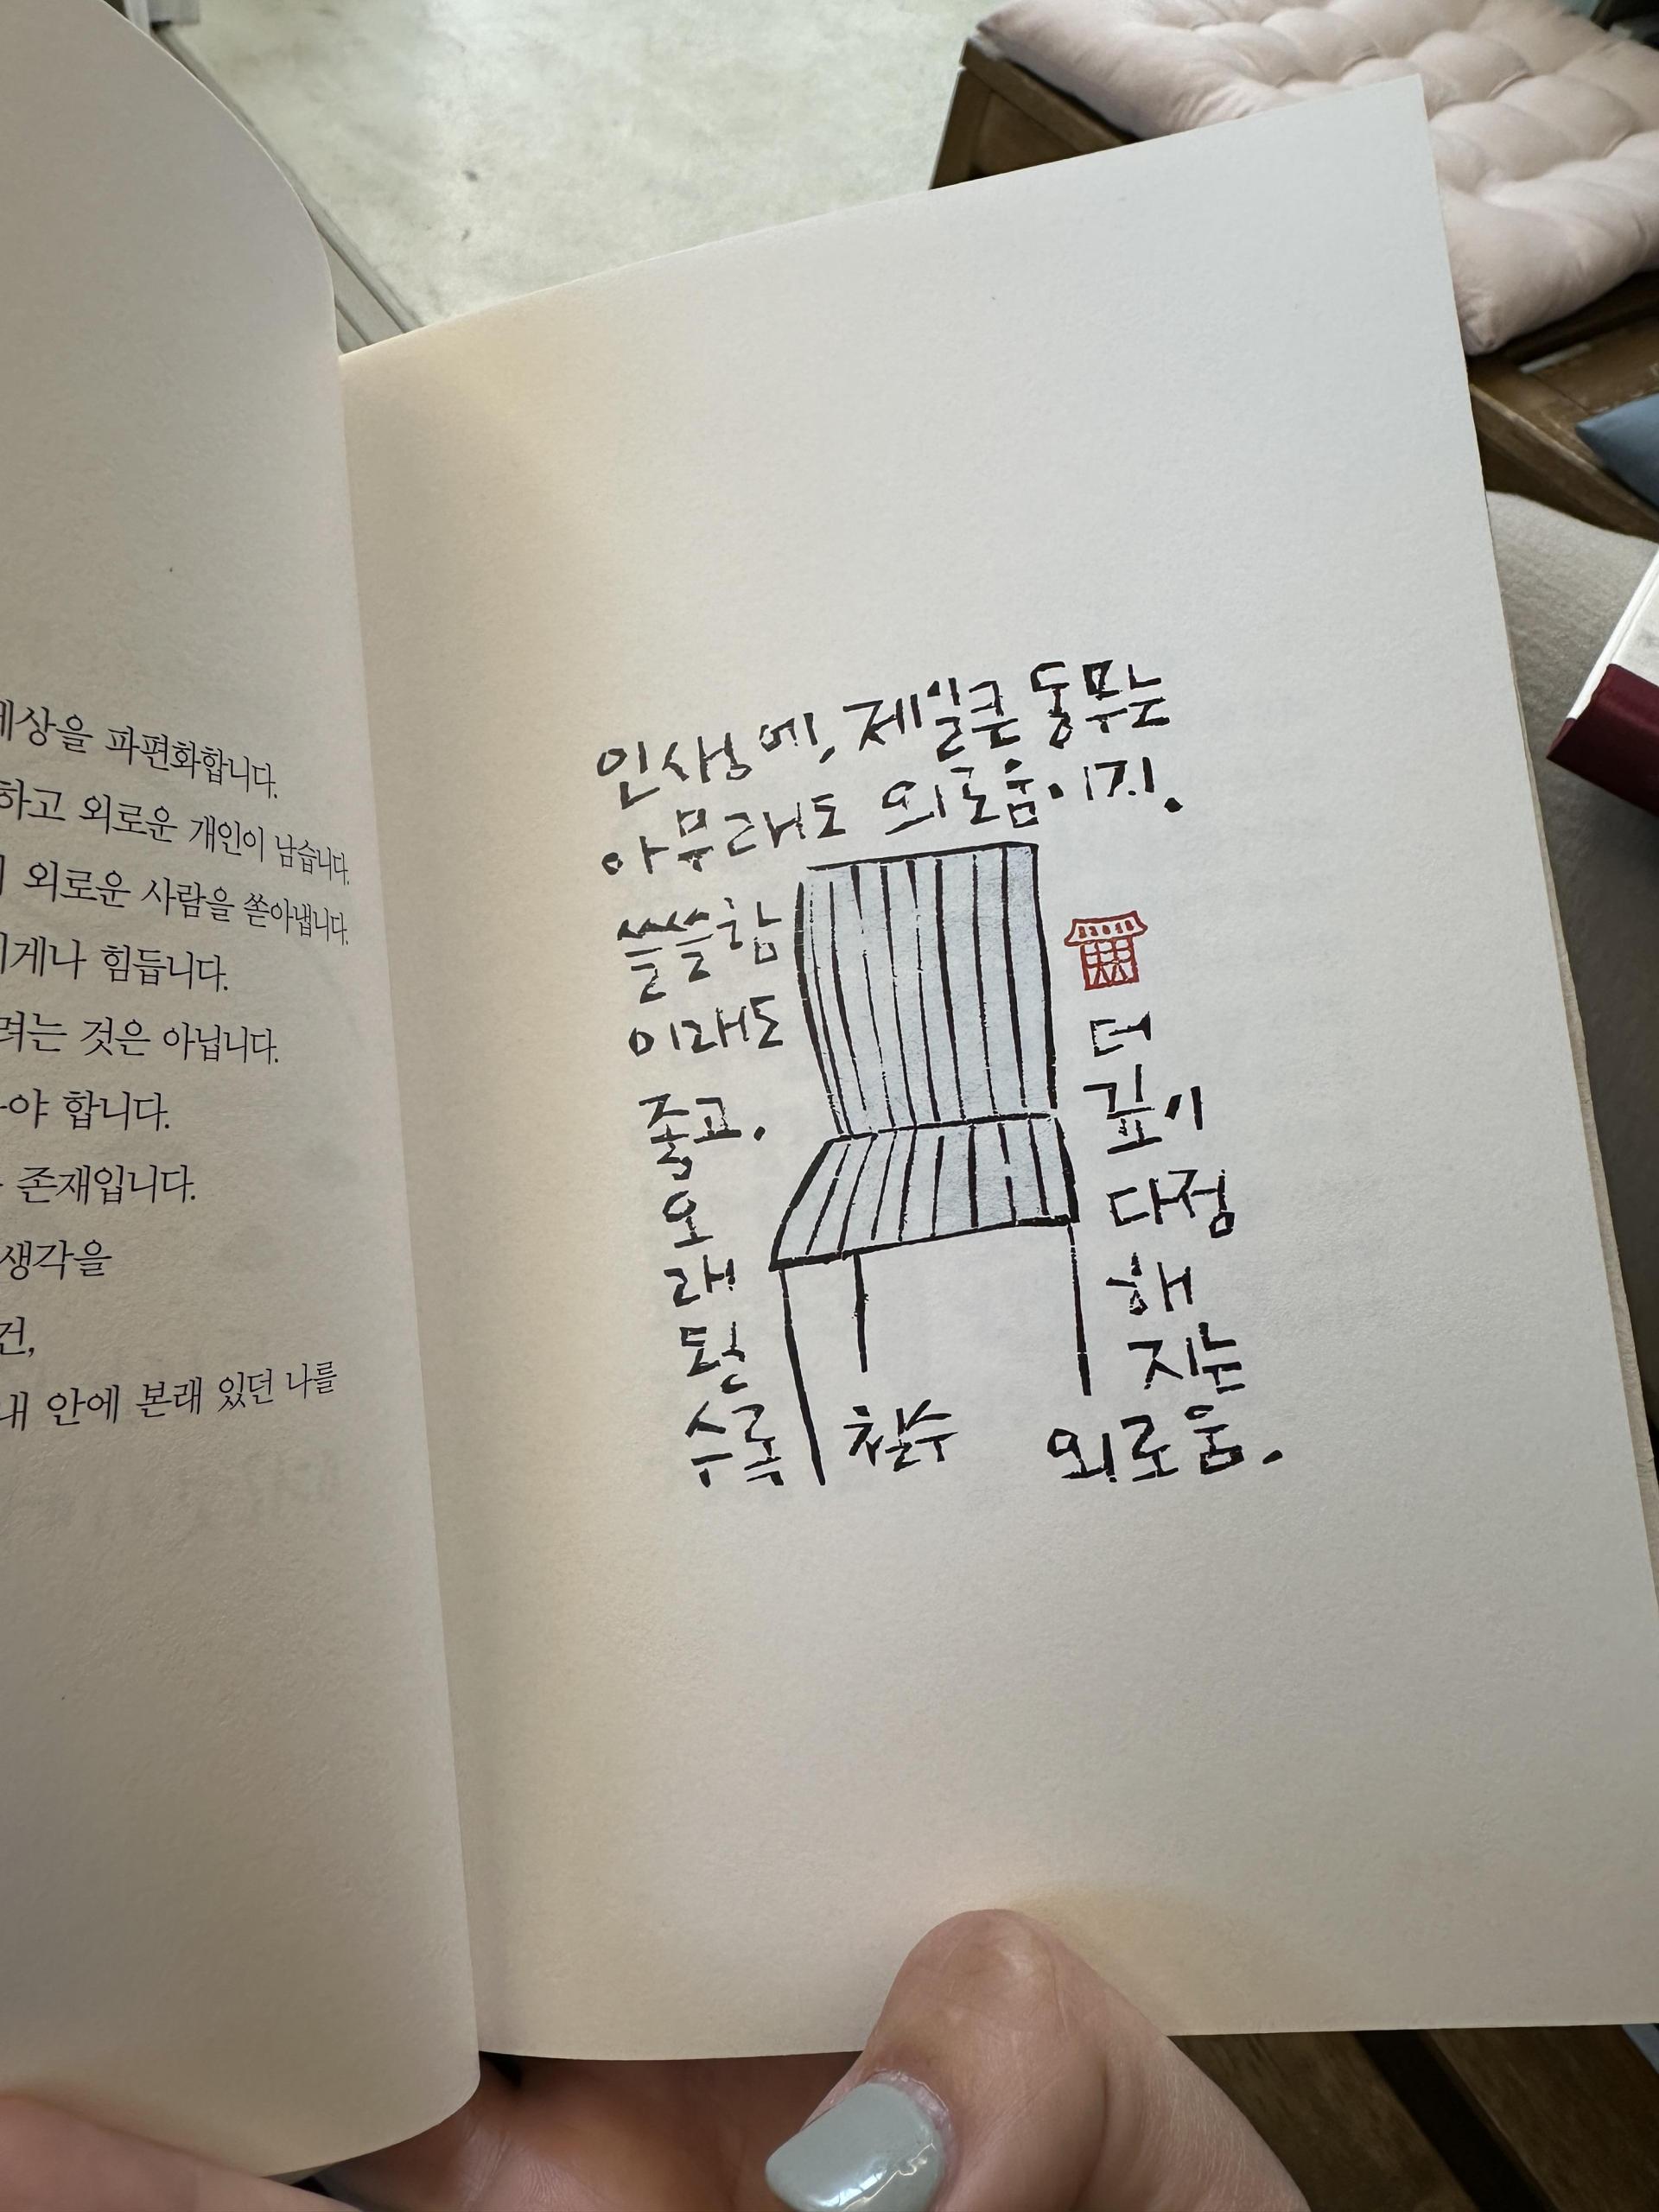 세상을 파편화합니다.
하고 외로운 개인이 남습니다.
외로운 사람을 쏟아냅니다.
게나 힘듭니다.
려는 것은 아닙니다.
야 합니다.
존재입니다.
생각을
건,
내 안에 본래 있던 나를
인생에, 제일큰 동무는
아무래도 외로움이지.
쓸쓸함
이래도
좋고.
오
래
된
수록
더
깊이
다정
해
지는
외로움.
철수